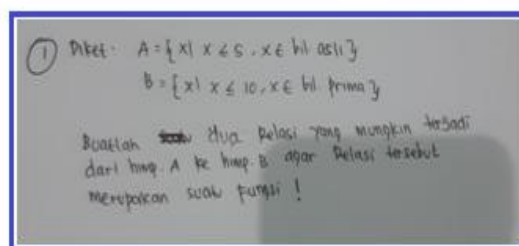 1 Diket : A = { x | x ≤ 5 , x ∈ bil asli }
B = { x | x ≤ 10 , x ∈ bil prima }
Buatlah dua Relasi yang mungkin terjadi
dari himp. A ke himp. B agar Relasi tersebut
merupakan suatu fungsi !